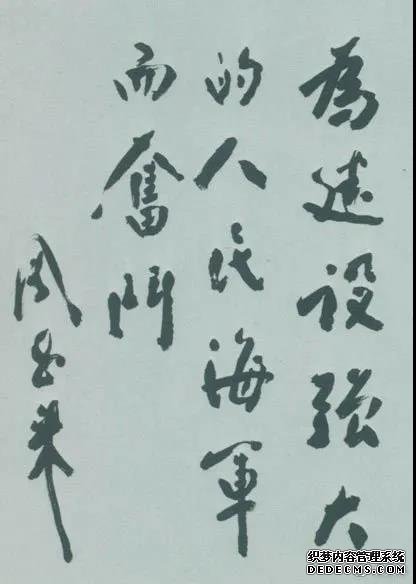 為建设强大
的人民海軍
而奮鬥
周恩来
织梦内容管理系统
DEDECMS.COM